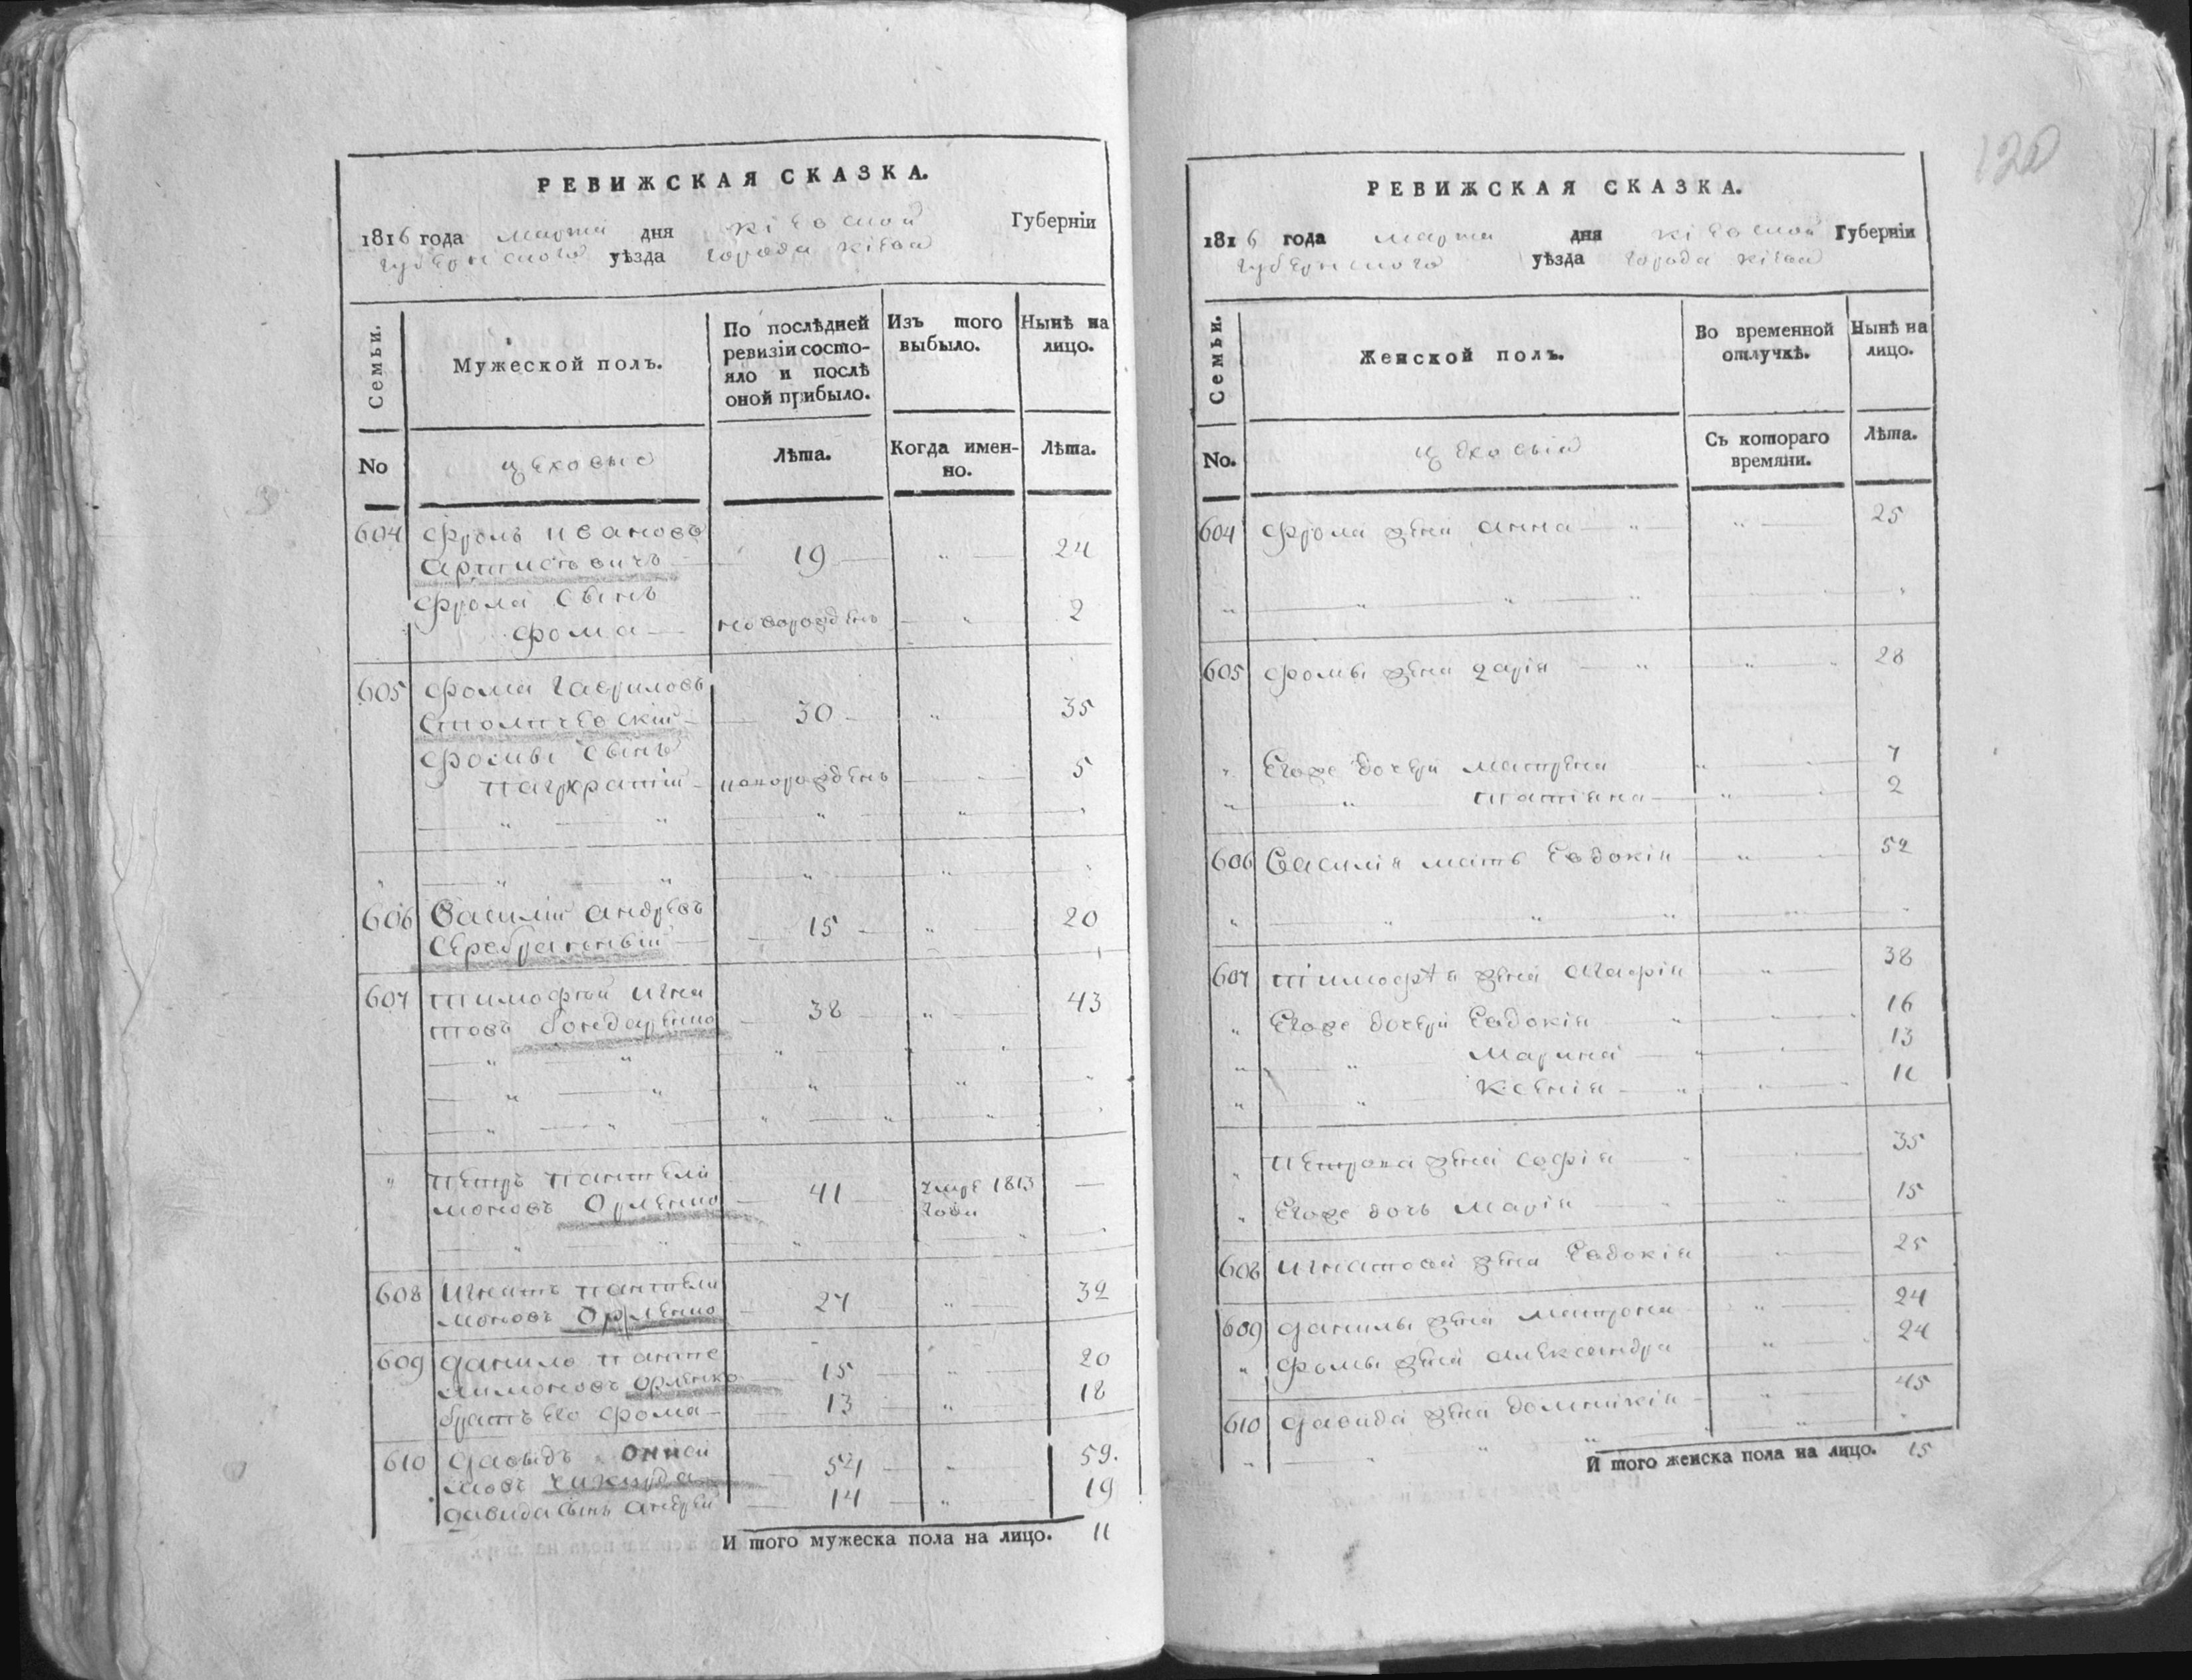 РЕВИЖСКАЯ СКАЗКА.
1816 года марта дня кіевской Губерніи
губернского уѣзда города кіева
Семьи.
Мужеской полъ.
По послѣдней ревизіи состояло и послѣ оной прибыло.
Изъ того выбыло.
Нынѣ на лицо.
No
цеховые
Лѣта.
Когда именно.
Лѣта.
604 Фролъ Ивановъ
19 " 24
Фрола сынъ
Фома новорожденъ " 2
605 Фома Гавриловъ
30 " 35
Фомы сынъ
Панкратій новорожденъ " 5
606 Василій Андреевъ
Серебранный 15 " 20
607 Тимофѣй Игна
товъ Бондаренко 38 " 43
" Петръ Пантели
моновъ Орленко 41 умре 1813 —
года
608 Игнатъ Пантели
моновъ Орленко 27 " 32
609 Данило Панте
лимоновъ Орленко 15 " 20
братъ его Фома 13 " 18
610 Давыдъ
54 " 59.
Давида сынъ Андрей 14 " 19
И того мужеска пола на лицо. 11
120
РЕВИЖСКАЯ СКАЗКА.
1816 года марта дня кіевской Губерніи
губернского уѣзда города кіева
Семьи.
Женской полъ.
Во временной отлучкѣ.
Нынѣ на лицо.
No.
цеховыя
Съ котораго времяни.
Лѣта.
604 Фрола жена Анна " " 25
605 Фомы жена Дарія " " 28
" Егоже дочери Матрена " 7
" " Татіяна " 2
606 Василія мать Евдокія " 52
607 Тимофѣя жена Агафія " 38
" Егоже дочери Евдокія " " 16
" " Марина " " 13
" " Ксенія " " 11
" Петрова жена Софія " 35
" Егоже дочь Марія " " 15
608 Игнатова жена Евдокія " 25
609 Данилы жена Матрона " 24
" Фомы жена Александра " 24
610 Давида жена Домникія " 45
И того женска пола на лицо. 15